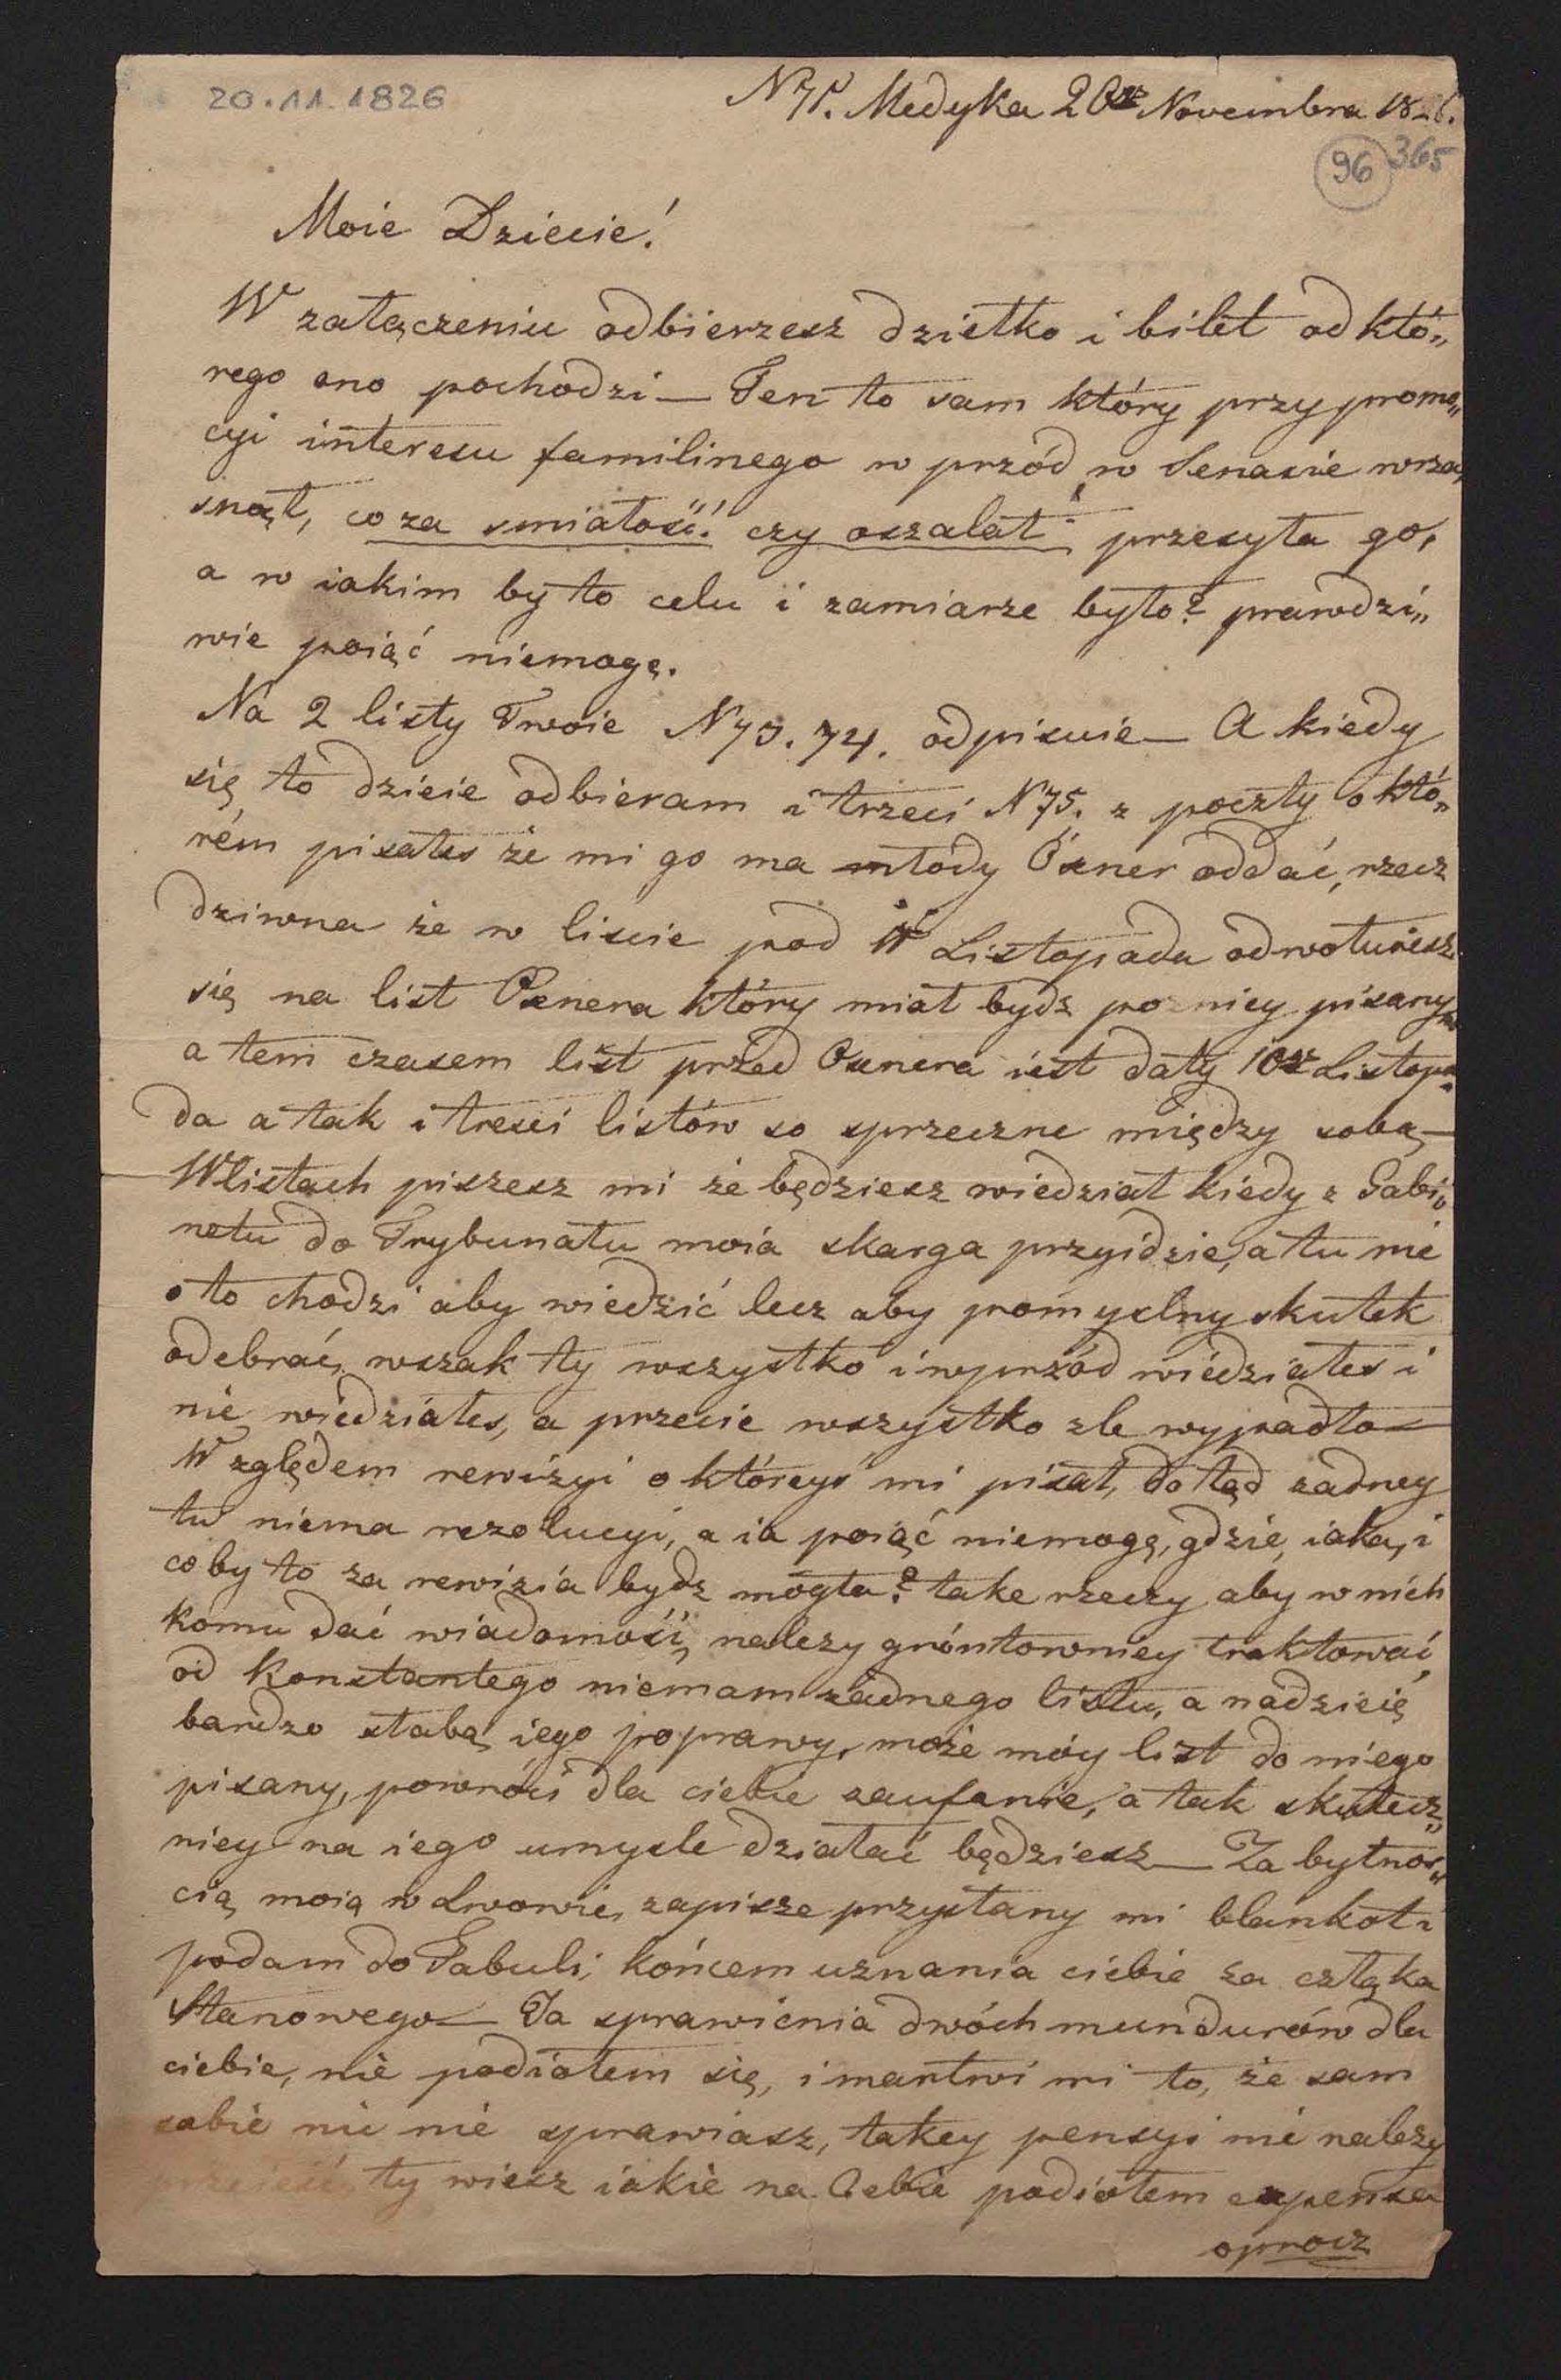 20.11.1826
N 71. Medyka 20go Novembra 1826.
96 365
Moie Dziecie!
W załączeniu odbierzesz dziełko i bilet od któ„
rego ono pochodzi — Ten to sam który przy promo„
cyi interesu familinego w przód w Senacie wrza„
snął, co za smiałość! czy oszalał przesyła go,
a w iakim by to celu i zamiarze było? prawdzi„
wie poiąć niemogę.
Na 2 listy Twoie N 73. 74. odpisuie — A kiedy
się to dzieie odbieram i trzeci N 75. z poczty o któ„
rém pisałes że mi go ma młody Oxner oddać, rzecz
dziwna że w liscie pod 11 Listopada odwołuiesz
się na list Oxnera który miał bydz pozniey pisany
a tem czasem list przed Oxnera iest daty 10go Listopa„
da a tak i tresci listów so sprzeczne między sobą —
W listach piszesz mi że będziesz wiedział kiedy z Gabi„
netu do Trybunału moia skarga przyidzie, a tu nie
o to chodzi aby wiedzić lecz aby pomyslny skutek
odebrać, wszak ty wszystko i wprzód wiedziałes i
nie wiedziałes, a przecie wszystko zle wypadło —
Względem rewizyi o któreys mi pisał, do tąd zadney
tu niema rezolucyi, a ia poiąć niemogę, gdzie, iaka, i
co by to za rewizia bydz mogła? take rzeczy aby w nich
komu dać wiadomość, nalezy gróntowniey traktować,
od Konstantego niemam żadnego listu, a nadzieię
bardzo słabą iego poprawy, może móy list do niego
pisany, powróci dla ciebie zaufanie, a tak skutecz„
niey na iego umysle działać będziesz — Za bytnos„
cią moią w Lwowie, zapisze przysłany mi blankot i
podam do Tabuli, końcem uznania ciebie za człąka
Stanowego — Ja sprawienia dwóch mundurów dla
ciebie, nie podiołem się, i martwi mi to, że sam
sobie nic nie sprawiasz, takey pensyi nie nalezy
ty wiesz iakie na Ciebie podiołem expensa
oprocz